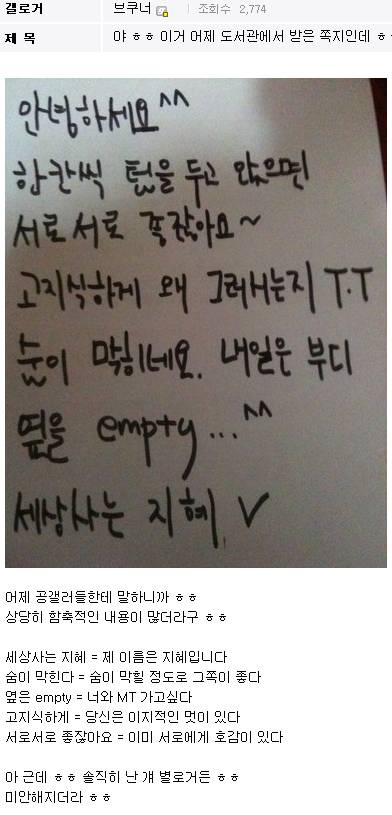 갤로거 브쿠너 조회수 2,774
제 목 야 ㅎㅎ 이거 어제 도서관에서 받은 쪽지인데 ㅎ
안녕하세요^^
한칸씩 텀을 두고 앉으면
서로서로 좋잖아요~
고지식하게 왜 그러시는지 T.T
숨이 막히네요. 내일은 부디
옆을 empty...^^
세상사는 지혜. V
어제 공갤러들한테 말하니까 ㅎㅎ
상당히 함축적인 내용이 많더라구 ㅎㅎ
세상사는 지혜 = 제 이름은 지혜입니다
숨이 막힌다 = 숨이 막힐 정도로 그쪽이 좋다
옆은 empty = 너와 MT 가고싶다
고지식하게 = 당신은 이지적인 멋이 있다
서로서로 좋잖아요 = 이미 서로에게 호감이 있다
아 근데 ㅎㅎ 솔직히 난 걔 별로거든 ㅎㅎ
미안해지더라 ㅎㅎ